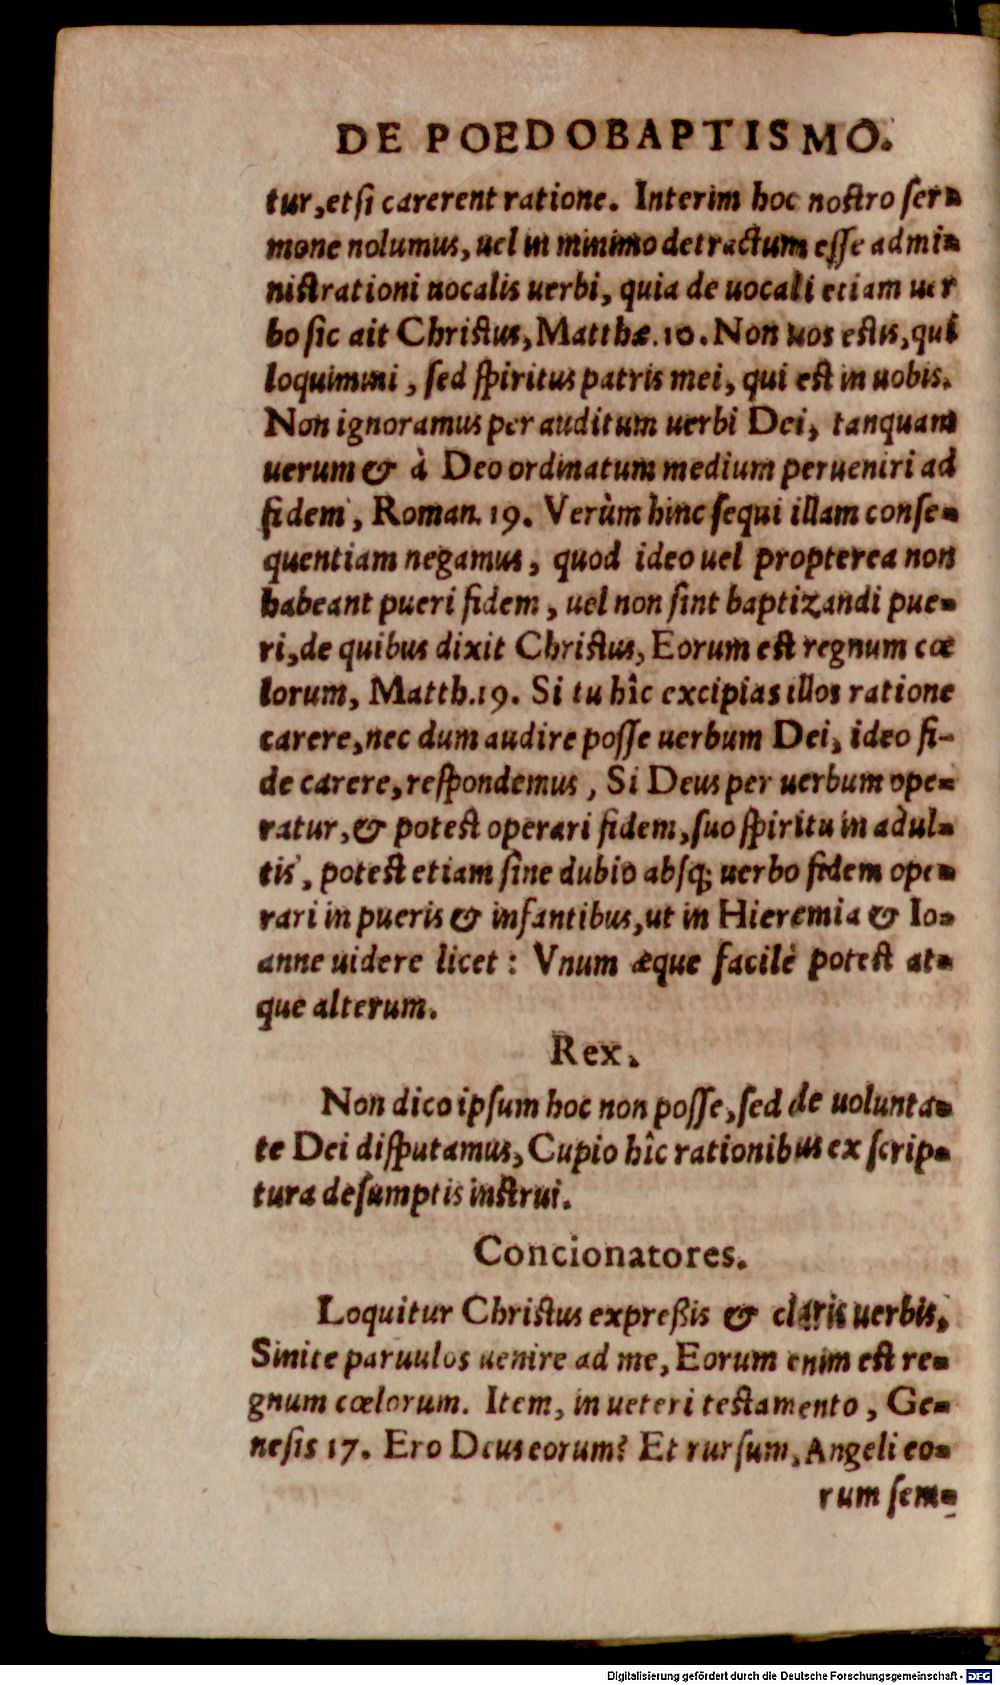 DE POEDOBAPTISMO.
tur, etſi carerent ratione. Interim hoc noſtro ſer-
mone nolumus, uel in minimo detractum eſſe admi-
niſtrationi uocalis uerbi, quia de uocali etiam uer
bo ſic ait Chriſtus, Matthæ. 10. Non uos eſtis, qui
loquimini, ſed ſpiritus patris mei, qui eſt in uobis.
Non ignoramus per auditum uerbi Dei, tanquam
uerum & à Deo ordinatum medium perueniri ad
fidem, Roman. 19. Verùm hinc ſequi illam conſe-
quentiam negamus, quod ideo uel propterea non
habeant pueri fidem, uel non ſint baptizandi pue-
ri, de quibus dixit Chriſtus, Eorum eſt regnum cœ
lorum, Matth. 19. Si tu hîc excipias illos ratione
carere, nec dum audire poſſe uerbum Dei, ideo fi-
de carere, reſpondemus, Si Deus per uerbum ope-
ratur, & poteſt operari fidem, ſuo ſpiritu in adul-
tis, poteſt etiam ſine dubio abſq; uerbo fidem ope-
rari in pueris & infantibus, ut in Hieremia & Io-
anne uidere licet: Vnum æque facilè poteſt at-
que alterum.
Rex.
Non dico ipſum hoc non poſſe, ſed de uolunta-
te Dei diſputamus, Cupio hîc rationibus ex ſcrip-
tura deſumptis inſtrui.
Concionatores.
Loquitur Chriſtus expreßis & claris uerbis,
Sinite paruulos uenire ad me, Eorum enim eſt re-
gnum cœlorum. Item, in ueteri teſtamento, Ge-
neſis 17. Ero Deus eorum? Et rurſum, Angeli eo-
rum ſem-
Digitalisierung gefördert durch die Deutsche Forschungsgemeinschaft - DFG